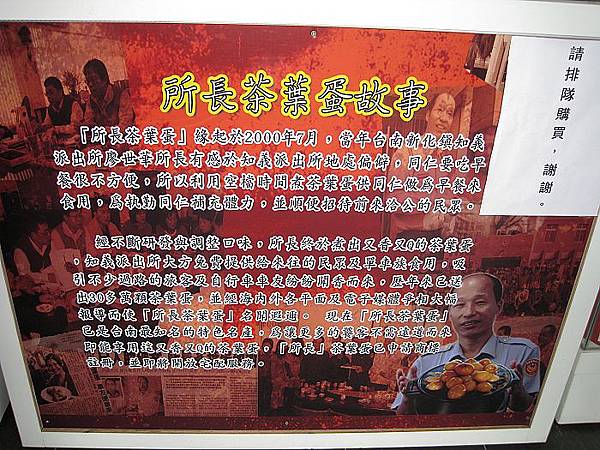 所長茶葉蛋故事
「所長茶葉蛋」緣起於2000年7月，當年台南新化鎮知義
派出所廖世華所長有感於知義派出所地處偏僻，同仁要吃早
餐很不方便，所以利用空檔時間煮茶葉蛋供同仁做為早餐來
食用，為執勤同仁補充體力，並順便招待前來洽公的民眾。
經不斷研發與調整口味，所長終於煮出又香又Q的茶葉蛋
，知義派出所大方免費提供給來往的民眾及單車族食用，吸
引不少過路的旅客及自行車車友紛紛聞香而來，歷年來已送
出30多萬顆茶葉蛋，並經海內外各平面及電子媒體爭相大幅
報導而使「所長茶葉蛋」名聞遐邇。 現在「所長茶葉蛋」
已是台南最知名的特色名產，為讓更多的饕客不需遠道而來
即能享用這又香又Q的茶葉蛋，「所長」茶葉蛋已申請商標
註冊，並即將開放宅配服務。
請排隊購買，謝謝。